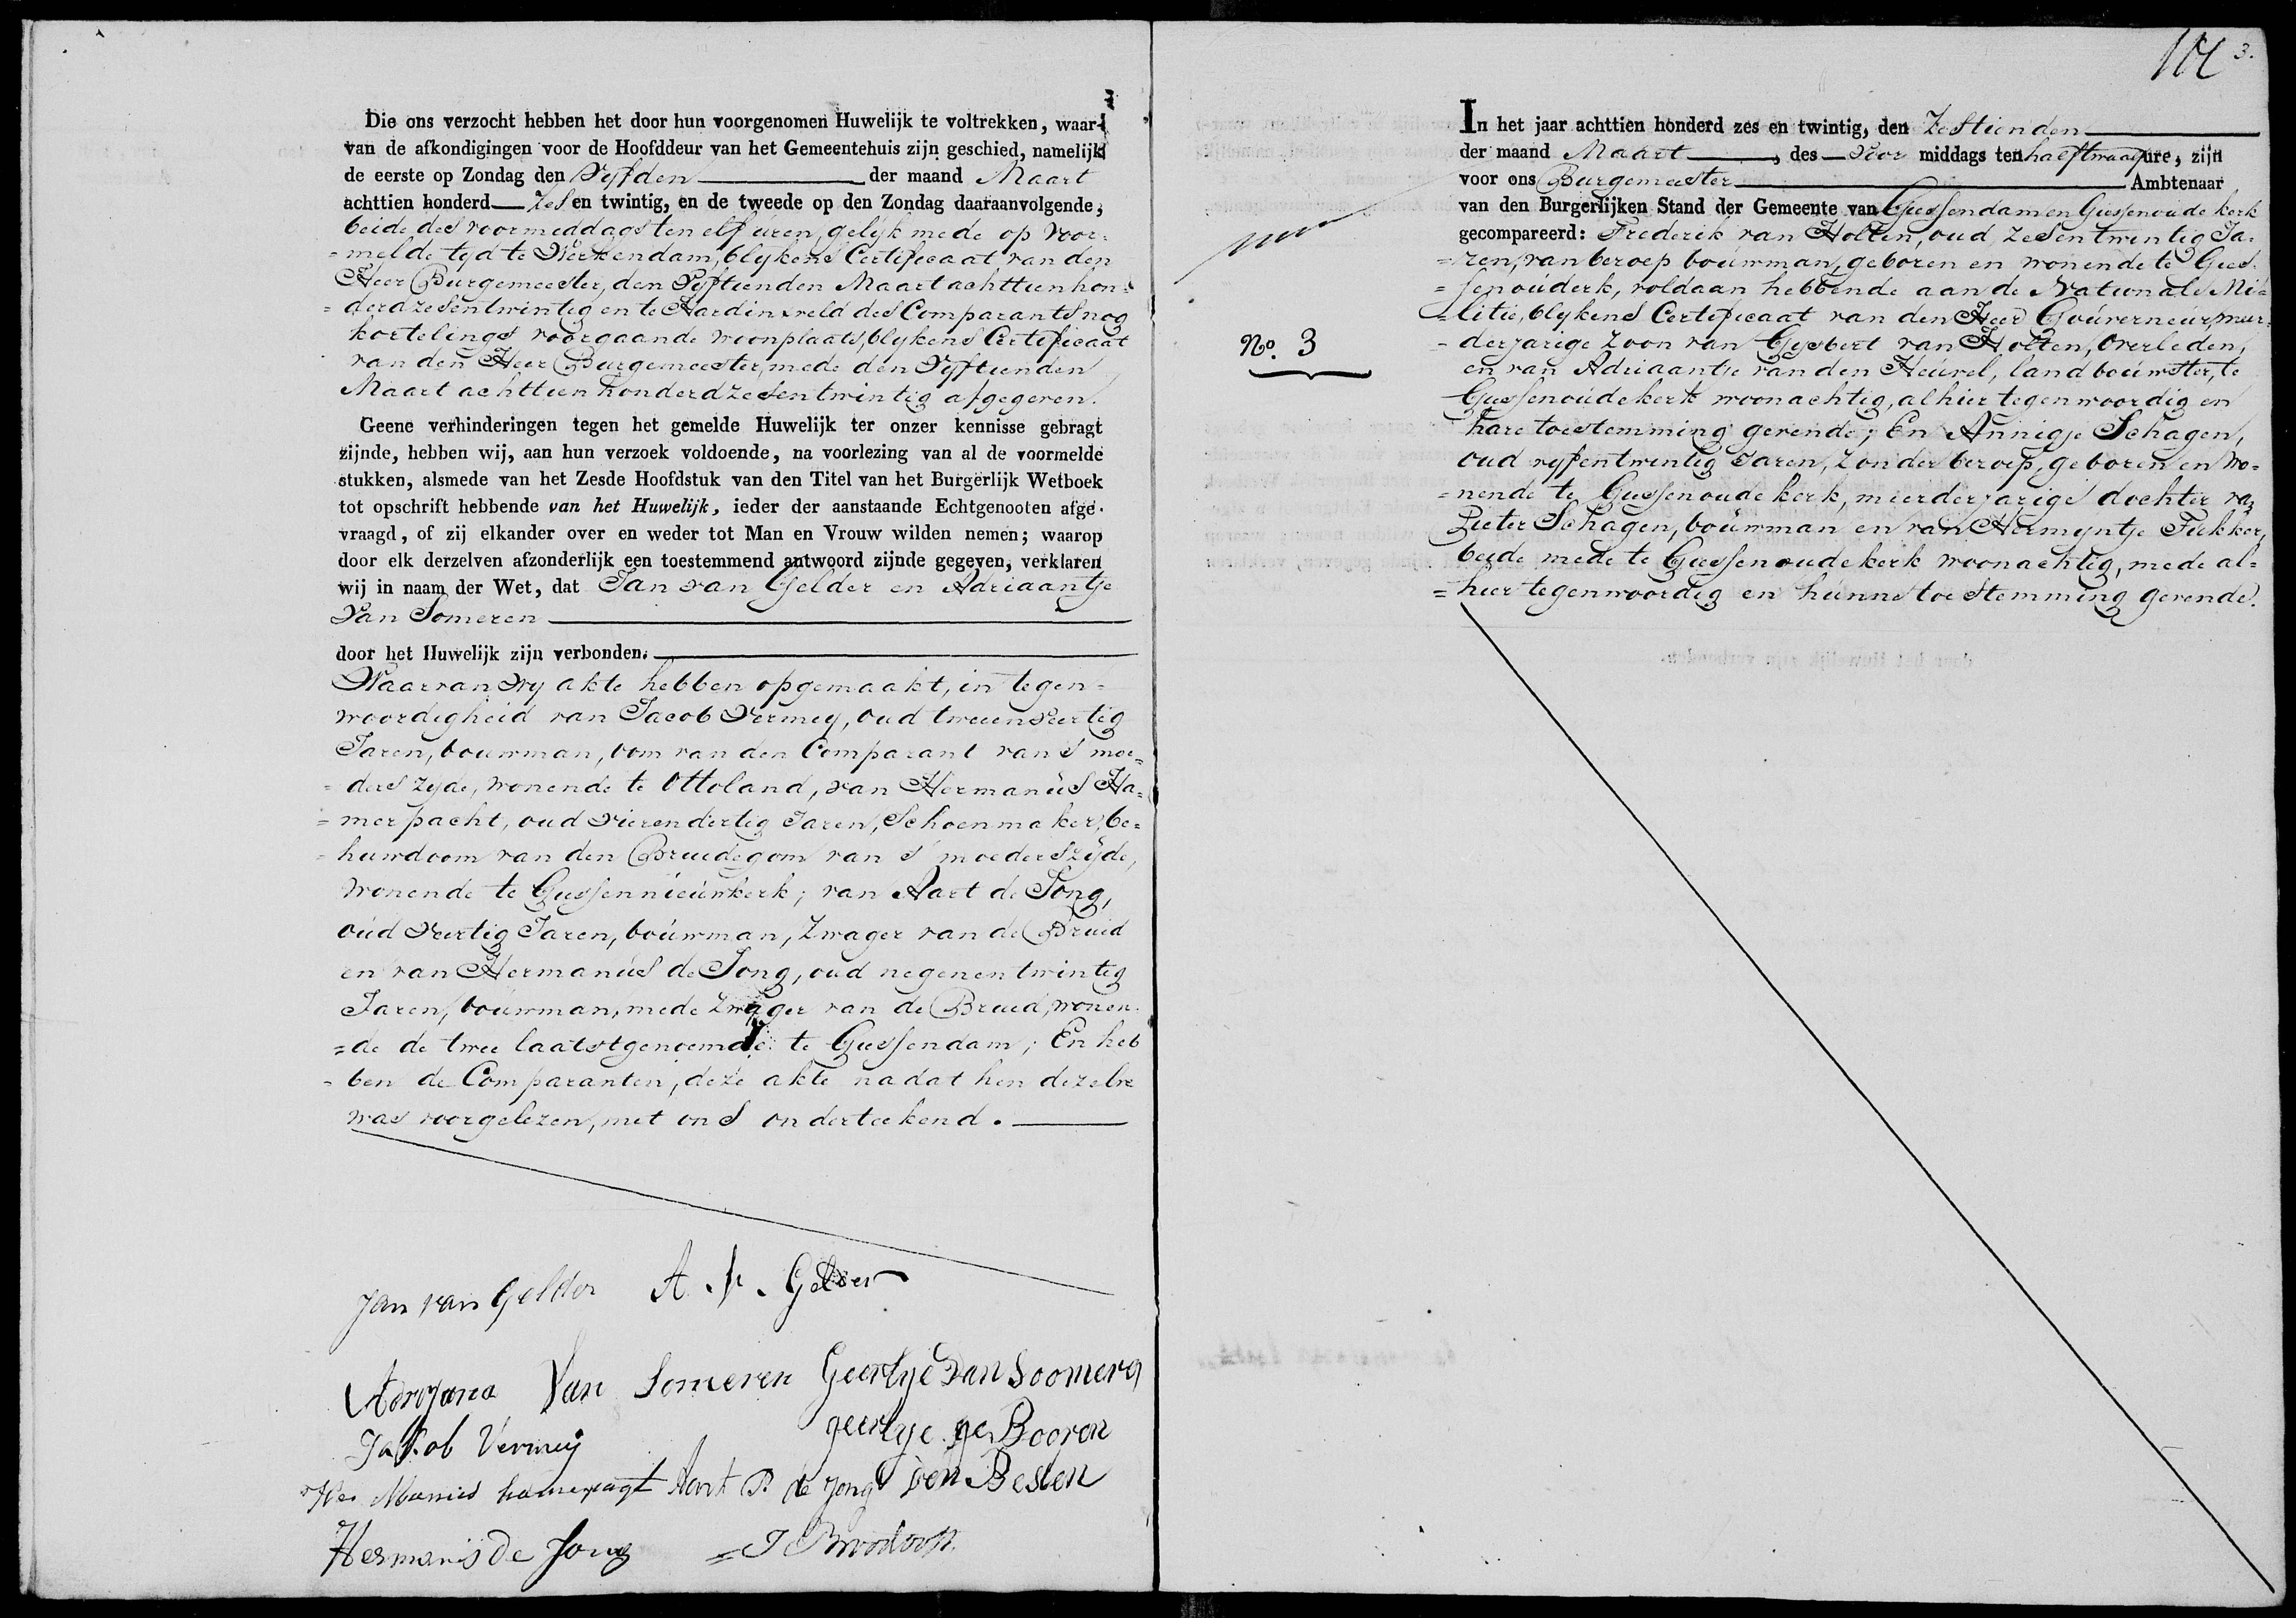 Die ons verzocht hebben het door hun voorgenomen Huwelijk te voltrekken, waar-
van de afkondigingen voor de Hoofddeur van het Gemeentehuis zijn geschied, namelijk
de eerste op Zondag den Vyfden der maand Maart
achttien honderd Zes en twintig, en de tweede op den Zondag daaraanvolgende,
beide des voormiddags ten elf úren, gelijk mede op voor-
=melde tyd te Werkendam, blykens Certificaat van den
Heer Burgemeester, den Vyftienden Maart achttienhon-
=derdzesentwintig en te Hardinxveld des Comparants nog
kortelings voorgaande woonplaats, blykens Certificaat
van den Heer Burgemeester, mede den Vyftienden
Maart achttienhonderdzesentwintig afgegeven.
Geene verhinderingen tegen het gemelde Huwelijk ter onzer kennisse gebragt
zijnde, hebben wij, aan hun verzoek voldoende, na voorlezing van al de voormelde
stukken, alsmede van het Zesde Hoofdstuk van den Titel van het Burgerlijk Wetboek
tot opschrift hebbende van het Huwelijk, ieder der aanstaande Echtgenooten afge-
vraagd, of zij elkander over en weder tot Man en Vrouw wilden nemen; waarop
door elk derzelven afzonderlijk een toestemmend antwoord zijnde gegeven, verklaren
wij in naam der Wet, dat Jan van Gelder en Adriaantje
Van Someren
door het Huwelijk zijn verbonden.
Waarvan Wy akte hebben opgemaakt, in tegen=
woordigheid van Jacob Vermey, oud tweenveertig
Jaren, bouwman, oom van den Comparant van s moe=
=ders zyde, wonende te Ottoland, van Hermanús Ha=
=merpacht, oud vierendertig Jaren, Schoenmaker, be=
=huwdoom van den Bruidegom van s' moederszyde,
wonende te Giessennieúwkerk; van Aart de Jong,
oúd Veertig Jaren, boúwman, Zwager van de Bruid
en van Hermanús de Jong, oud negenentwintig
Jaren, boúwman, mede Zwager van de Bruid, wonen-
=de de twee laatstgenoemde te Giessendam; En heb
=ben de Comparanten, deze akte nadat hen dezelve
was voorgelezen, met ons onderteekend.
Jan van Gelder A. v. Gelder
Adriyana Van Someren Geertije van Soomeren
Jakob Vermeij geertye
hamerpagt Aart P. de Jong Den Besten
Hermanis de Jong
3.
In het jaar achttien honderd zes en twintig, den Zestienden
der maand Maart, des Voor middags ten halftwaalf ure, zijn
voor ons Burgemeester Ambtenaar
van den Burgerlijken Stand der Gemeente van Giessendam en Giessenoudekerk
gecompareerd: Frederik van Holten, oud, zesentwintig Ja-
=ren, van beroep bouwman, geboren en wonende te Gies-
=senoúderk, voldaan hebbende aan de Nationale Mi=
=litie, blykens Certificaat van den Heer Goúverneúr, meer-
=derjarige Zoon van Gysbert van Holten, Overleden,
en van Adriaantje van den Heuvel, landboúwster, te
Giessenoúdekerk woonachtig, alhier tegenwoordig en
hare toestemming gevende; En Annigje Schagen,
oud vyfentwintig Jaren, Zonder beroep, geboren en wo=
=nende te Giessenoudekerk, meerderjarige dochter van
Pieter Schagen, boúwman en van Hermyntje Fukker,
beide mede te Giessenoudekerk woonachtig, mede al=
=hier tegenwoordig en húnne toestemming gevende.
No. 3